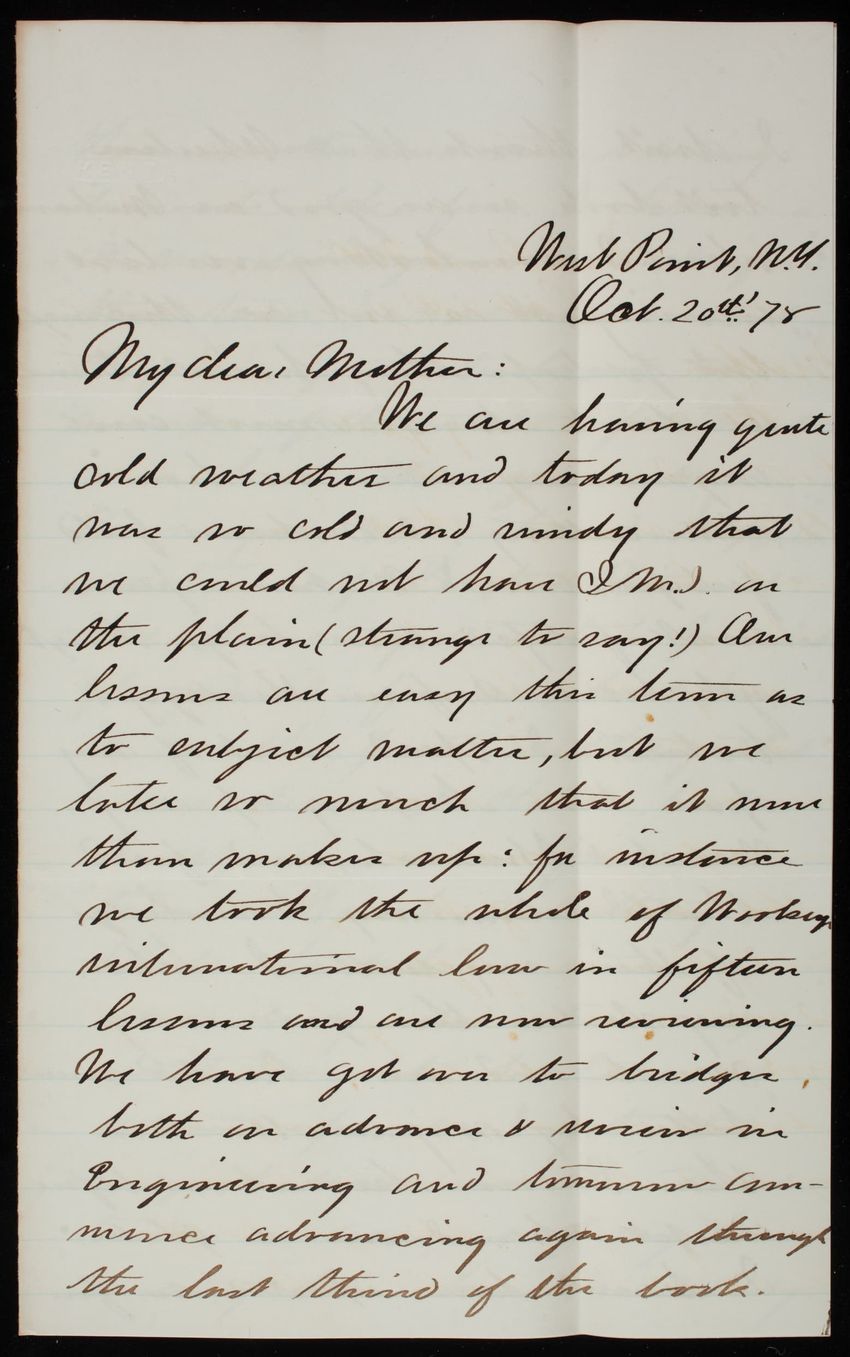 West Point, N.Y.
Oct. 20th '78
My dear Mother:
We are having quite
cold weather and today it
was so cold and windy that
we could not have I.M.) on
the plain (strange to say!) Our
lessons are easy this term as
to subject matter, but we
take so much that it more
than makes up: for instance
we took the whole of Woolsey
international law in fifteen
lessons and are now reviewing.
We have got over to bridges
both on advance & review in
Engineering and tomorrow com-
mence advancing again through
the last third of the book.